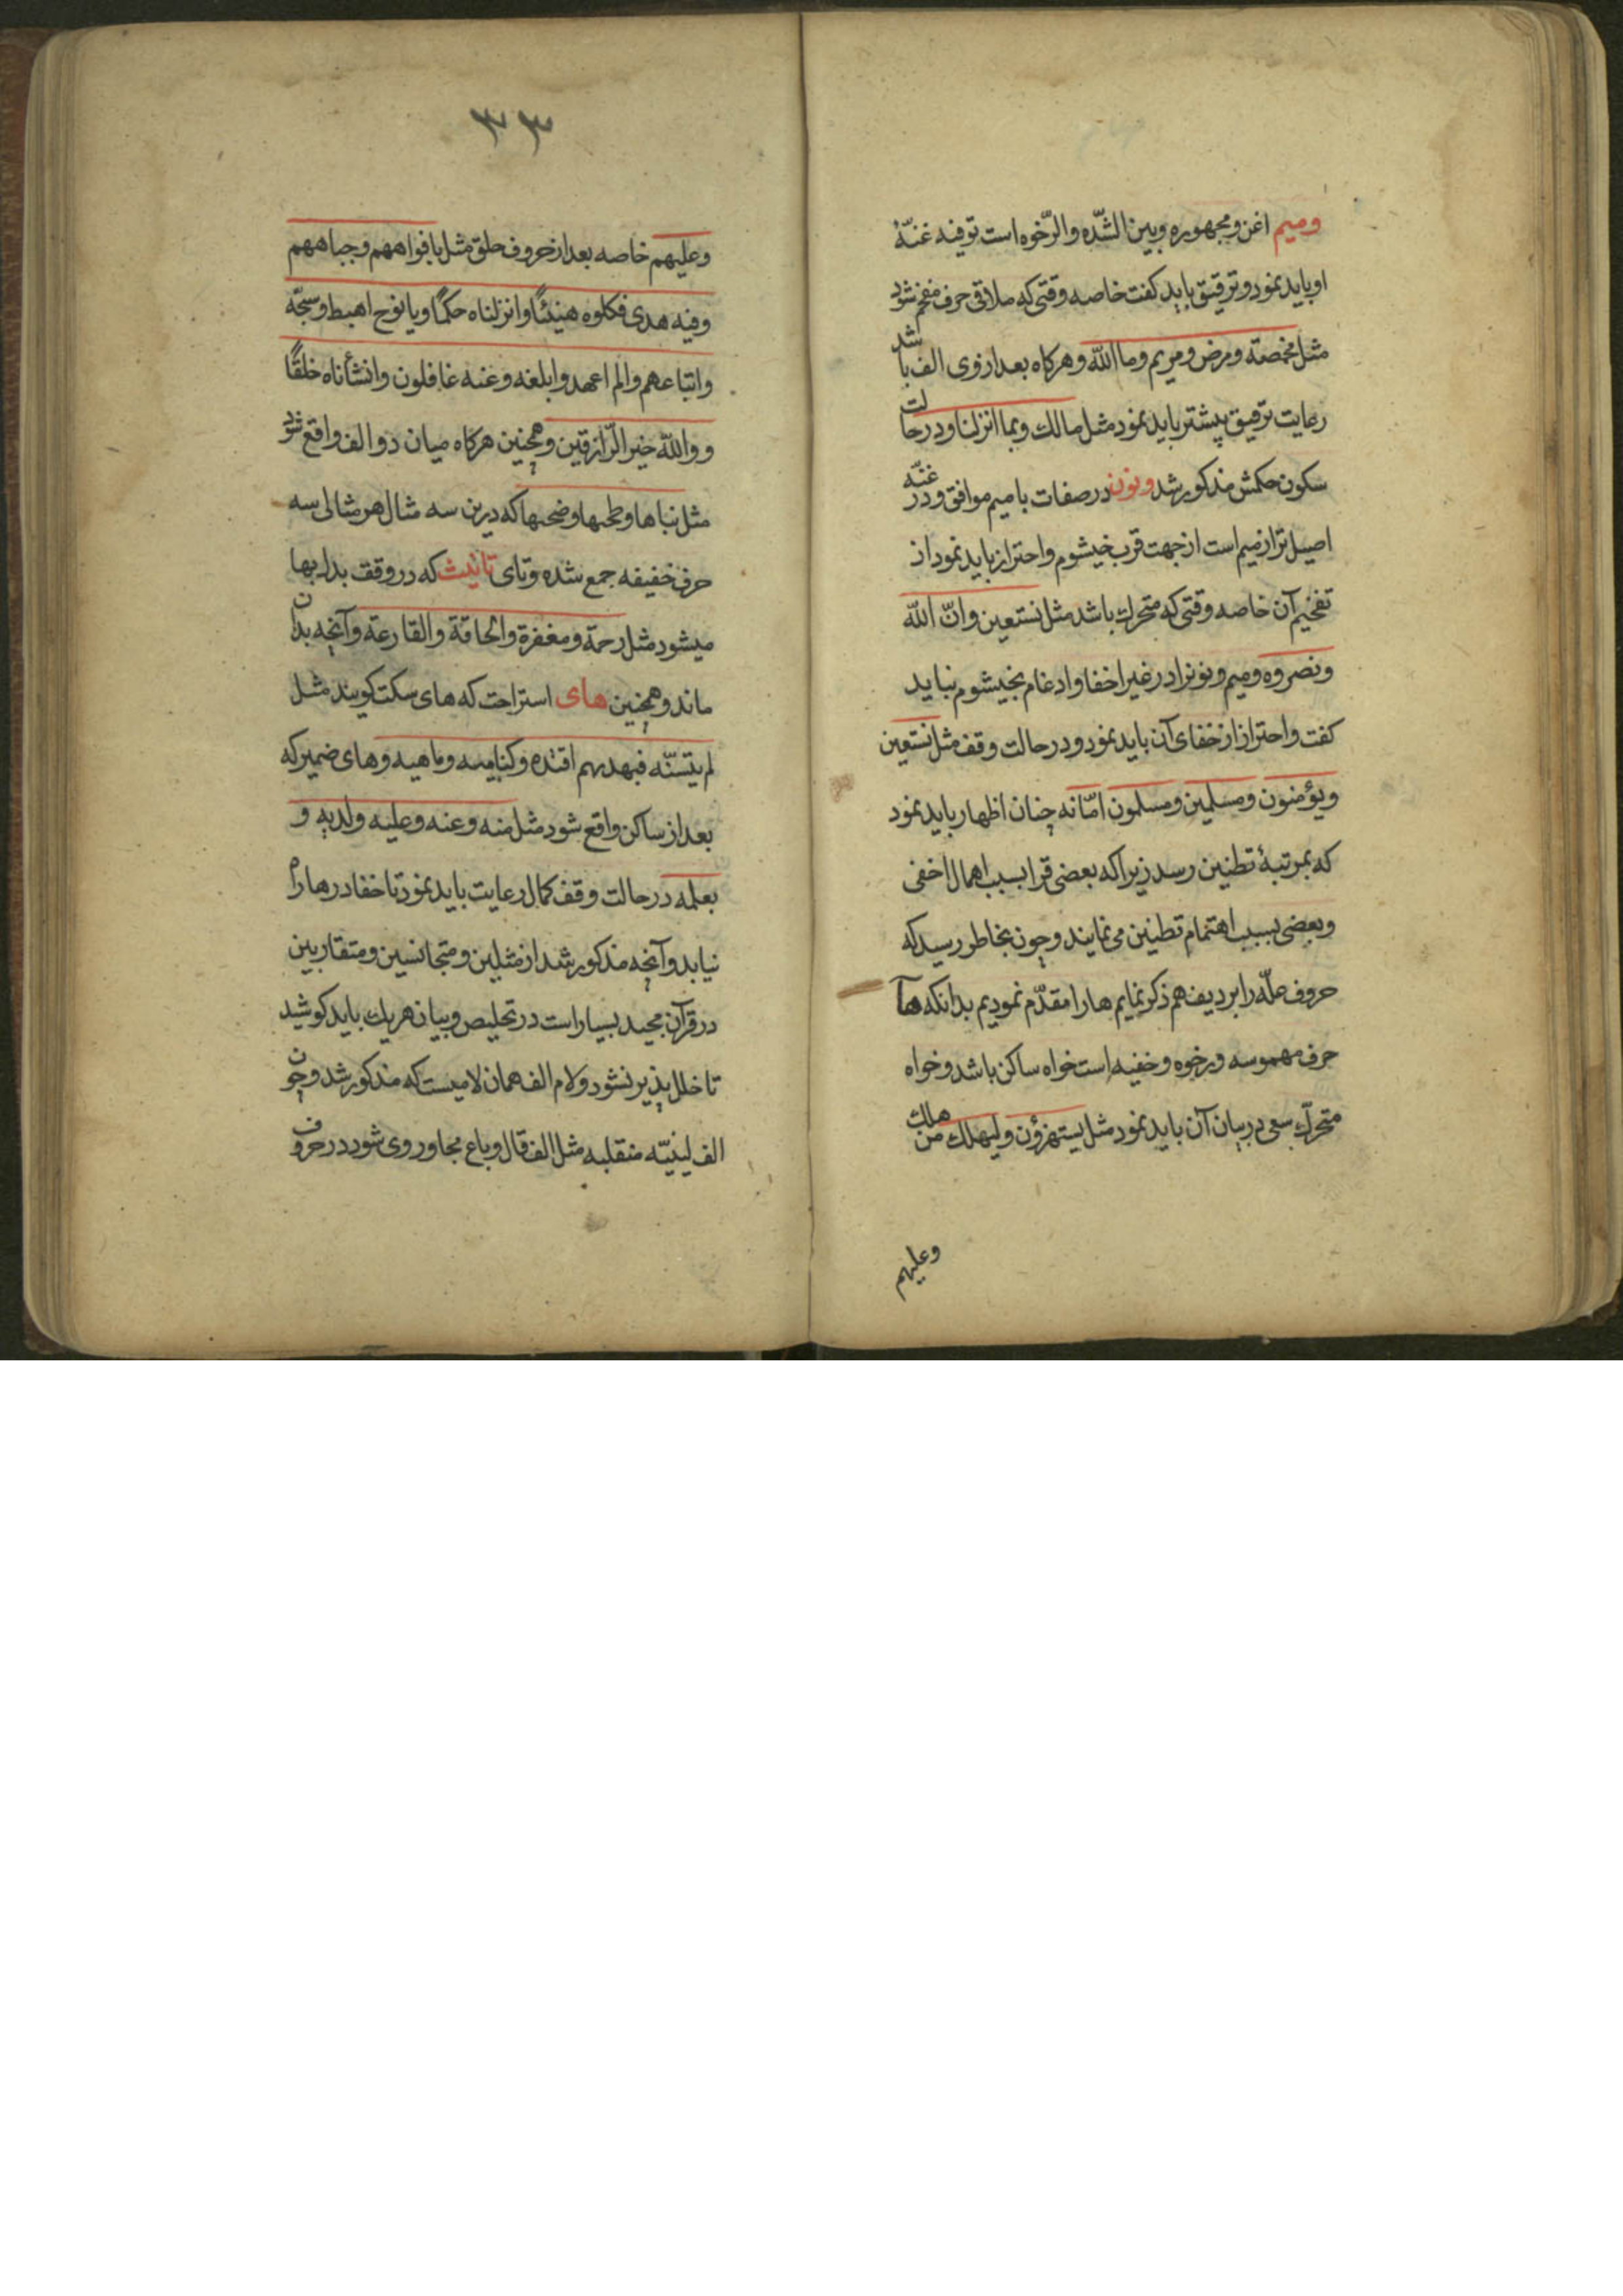 ومیم اغن ومجهوره وبین الشّده والرّخوه است توفیه غنّهٔ
او باید نمود وترقیق باید کفت خاصه وقتی که ملاقی حرف مفخم شود
مثل مخمصة ومرض ومریم وما اللّه وهرکاه بعد از وی الف باشد
رعایت ترقیق پیشتر باید نمود مثل مالك وبما انزلنا ودر حالت
سکون حکمش مذکور شد ونون در صفات با میم موافق ودر غنّه
اصیل تر از میم است از جهت قرب خیشوم واحتراز باید نمود از
تفخیم آن خاصه وقتی که متحرك باشد مثل نستعین وانّ اللّه
ونصروه ومیم ونونرا در غیر اخفا وادغام بخیشوم نباید
کفت واحتراز از خفای آن باید نمود ودر حالت وقف مثل نستعین
ویؤمنون ومسلمین ومسلمون امّا نه چنان اظهار باید نمود
که بمرتبهٔ تطنین رسد زیرا که بعضی قرا بسبب اهمال اخفی
وبعضی بسبب اهتمام تطنین می نمایند وچون بخاطر رسید که
حروف علّه را بر دیف هم ذکر نمایم هارا مقدّم نمودیم بدانکه هآ
حرف مهموسه ورخوه وخفیه است خواه ساکن باشد وخواه
متحرّك سعی در بیان آن باید نمود مثل یستهزؤن ولیهلك من هلك
وعلیهم
٣٣
وعلیهم خاصه بعد از حروف حلق مثل بافواههم وجباههم
وفیه هدی فکلوه هنیئًا وانزلناه حکمًا ویا نوح اهبط وسبّحه
واتباعهم والم اعهد وابلغه وعنه غافلون وانشأناه خلقًا
وواللّه خیر الرّازقین وهمچنین هرکاه میان دو الف واقع شود
مثل بناها وطحیها وضحیها که درین سه مثال هر مثالی سه
حرف خفیفه جمع شده وتای تانیث که در وقف بدل بها
میشود مثل رحمة ومغفرة والحاقة والقارعة وآنچه بدان
ماند وهمچنین های استراحت که های سکت کویند مثل
لم یتسنّه فبهدیهم اقتده وکتابیه وماهیه وهای ضمیر که
بعد از ساکن واقع شود مثل منه وعنه وعلیه ولدیه و
بعلمه در حالت وقف کمال رعایت باید نمود تا خفا در ها راه
نیابد وآنچه مذکور شد از مثلین ومتجانسین ومتقاربین
در قرآن مجید بسیار است در تخلیص وبیان هریك باید کوشید
تا خلل پذیر نشود ولام الف همان لامیست که مذکور شد وچون
الف لینیّه منقلبه مثل الف قال وباع مجاور وی شود در حروف